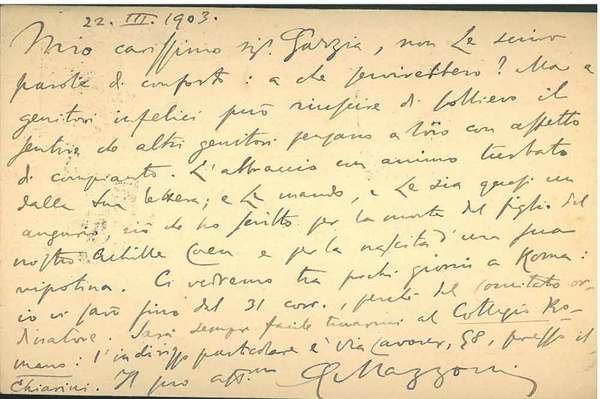 22. III. 1903.
Mio carissimo sig. Garzia, non Le scrivo
parole di conforto: a che servirebbero? Ma a
genitori infelici può riuscire di sollievo il
sentire che altri genitori pensano a loro con affetto
di compianto. L'abbraccio con animo turbato
dalla Sua lettera; e Le mando, e Le sia quasi un
augurio, ciò che ho scritto per la morte del figlio del
nostro Achille Coen e per la nascita d'una sua
nipotina. Ci vedremo tra pochi giorni a Roma:
io vi sarò fino dal 31 corr., perché del Comitato or-
dinatore. Sarà sempre facile trovarmi al Collegio Ro-
mano: l'indirizzo particolare è via Cavour, 58, presso il
Chiarini. Il suo aff.mo
G Mazzoni